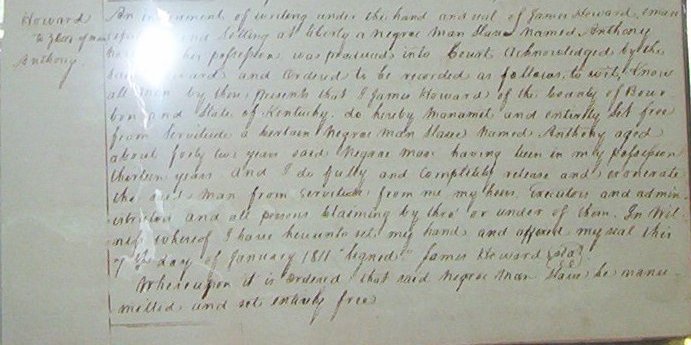 Howard
To Deed of Man
Anthony
An instrument of writing under the hand and seal of James Howard eman
and setting at liberty a Negroe Man Slave Named Anthony
her possession was produced into Court Acknowledged by the
said Howard and Ordered to be recorded as follows, to wit, Know
all men by these presents that I James Howard of the County of Bour-
bon and State of Kentucky do hereby Manamit and entirely Set free
from Servitude a Certain Negroe Man Slave Named Anthony aged
about forty two years said Negroe Man having been in my possession
thirteen years and I do fully and completely release and exonerate
the said Man from Servitude from me my heirs Executors and admin-
istrators and all persons Claiming by thro' or under of them. In Wit-
ness whereof I have hereunto set my hand and affixed my seal this
7th day of January 1811 "Signed" James Howard seal
Whereupon it is Ordered that said Negroe Man Slave be manu-
mitted and set entirely free